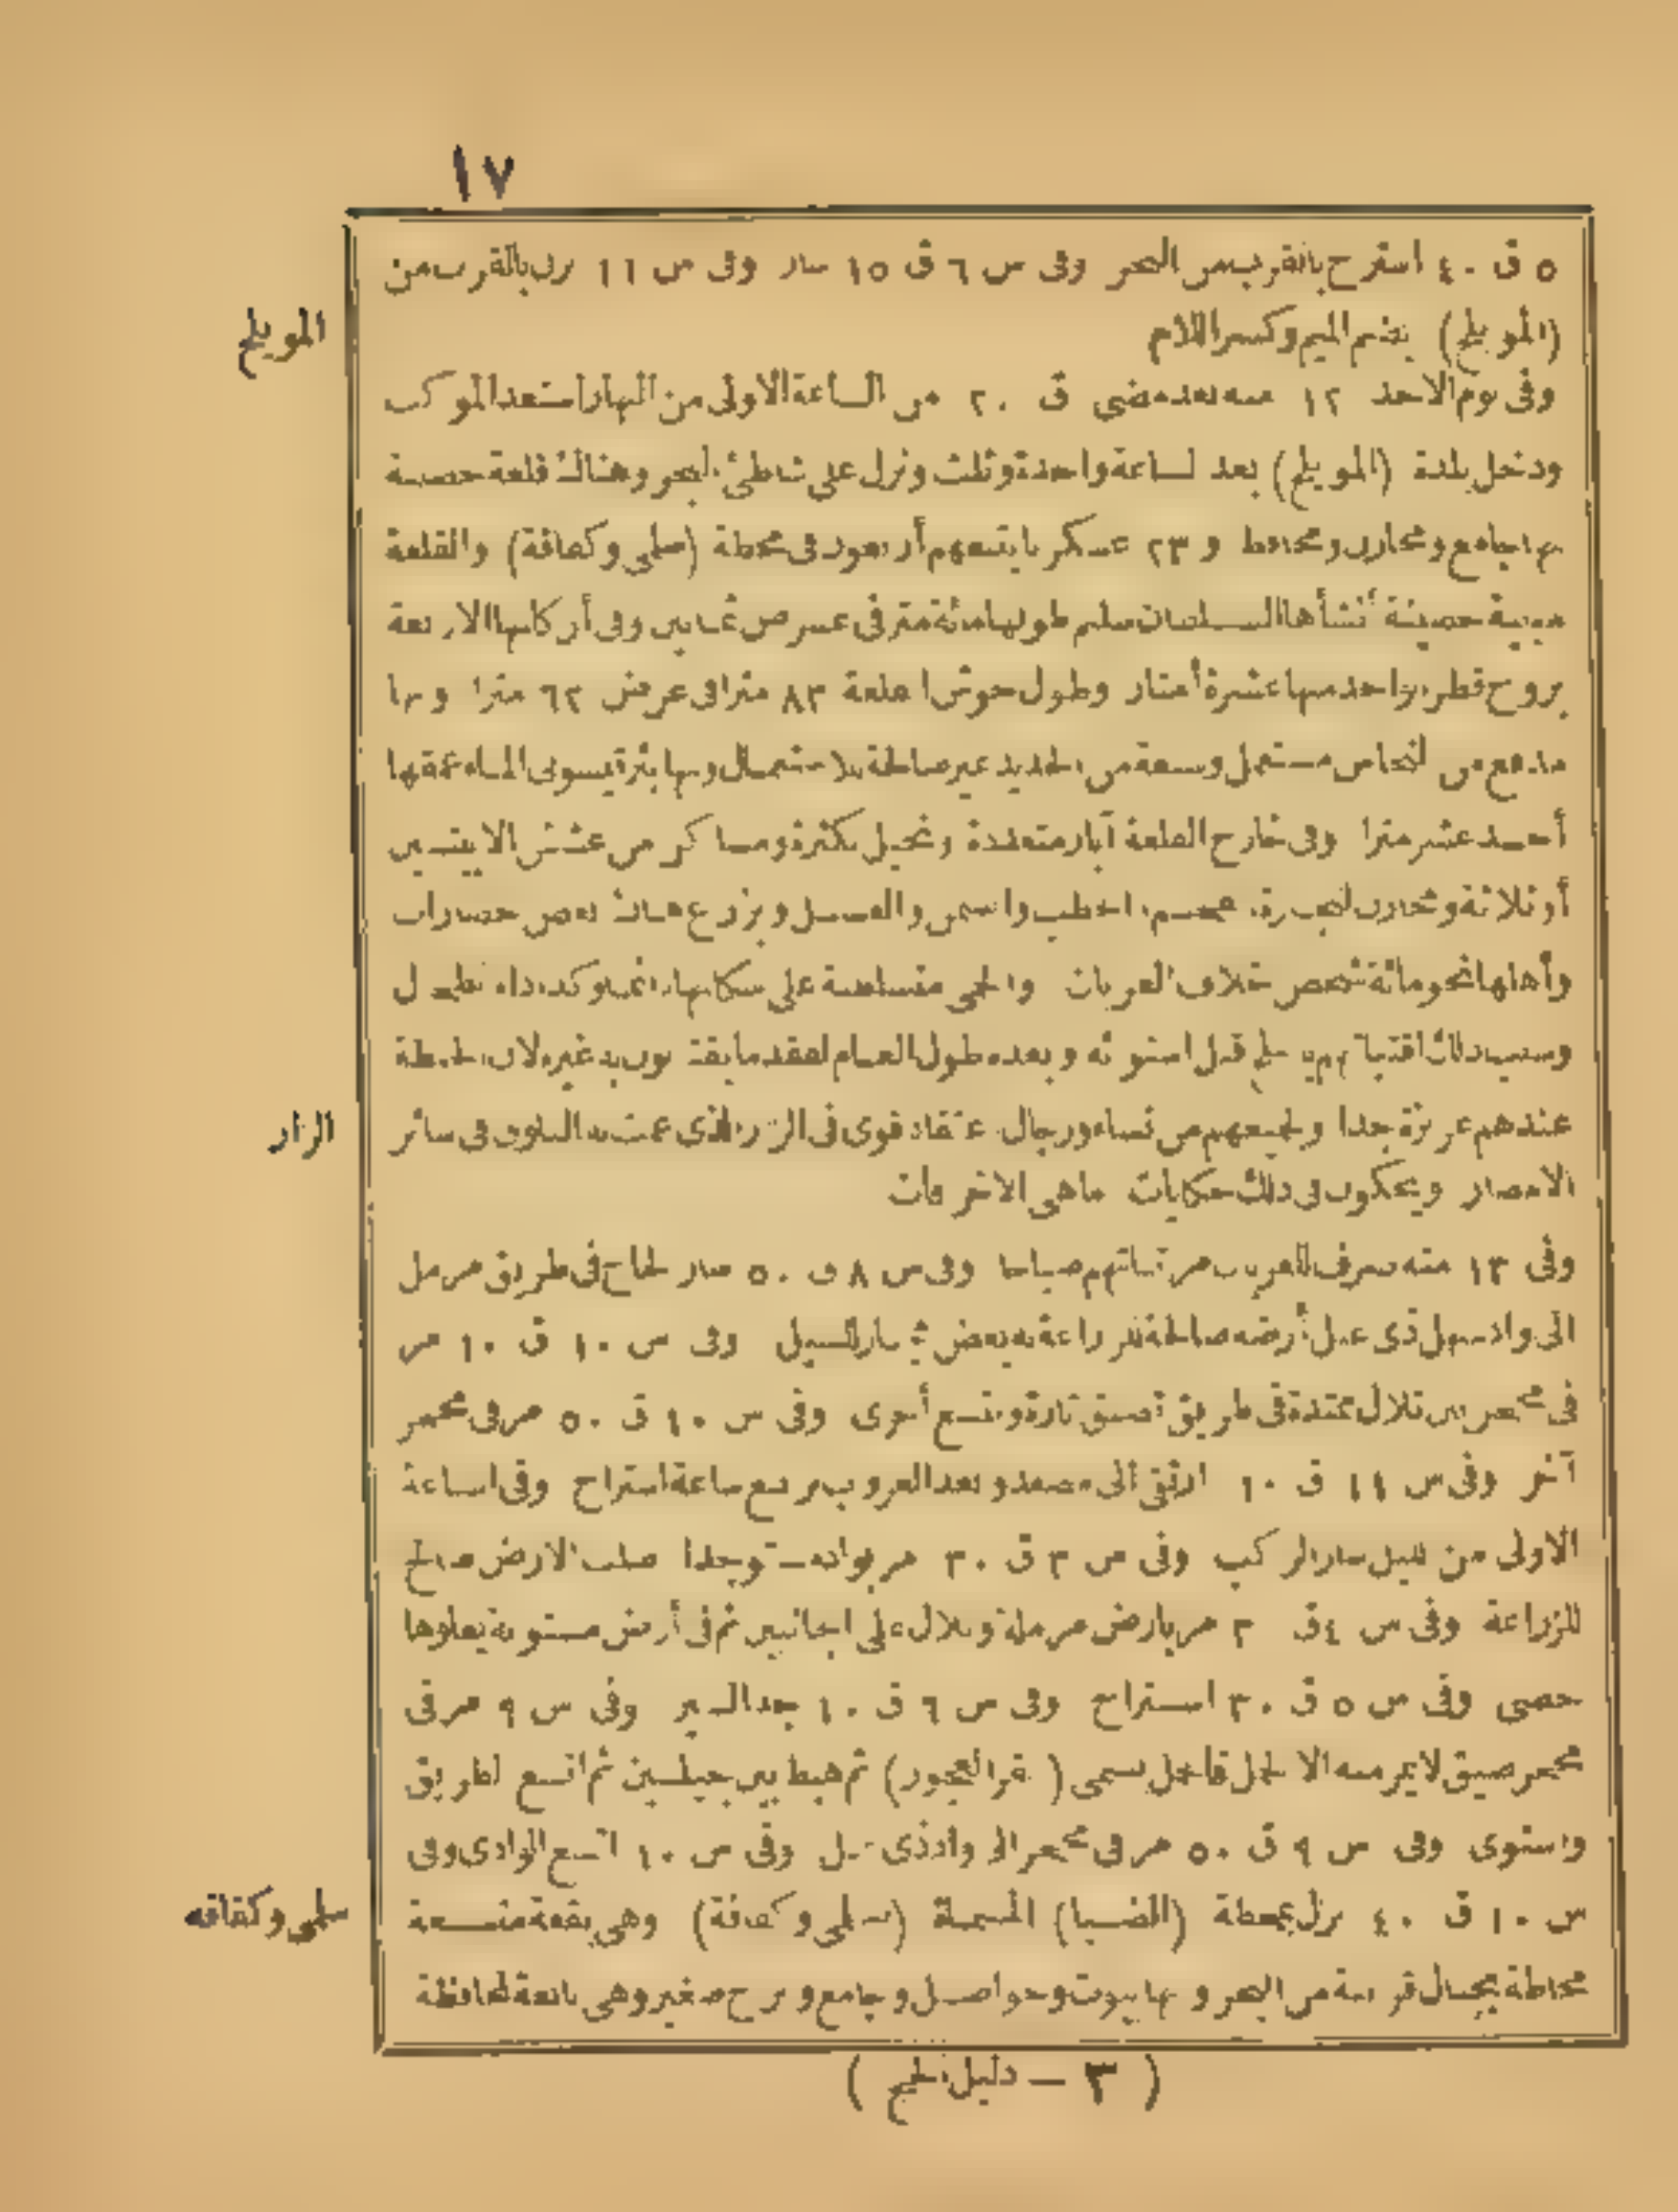 ١٧
٥ ق ٤٠ استرح بالقرب من البحر وفى س ٦ ق ١٥ سار وفى س ١١ نزل بالقرب من
المويلح
(المويلح) بضم الميم وكسر اللام
وفى يوم الاحد ١٢ منه بعد مضى ق ٢٠ من الساعة الاولى من النهار استعد الموكب
ودخل بلدة (المويلح) بعد ساعة واحدة وثلث ونزل على شاطئ البحر وهناك قلعة حصينة
بها جامع ومخازن ومحافظ و ٢٣ عسكريا يتبعهم أربعون فى محطة (سلمى وكفافة) والقلعة
مبنية حصينة أنشأها السلطان سليم طولها مائة متر فى عرض ثمانين وفى أركانها الاربعة
بروج قطر واحد منها عشرة أمتار وطول حوش القلعة ٨٣ مترا فى عرض ٦٢ مترا وبها
مدفع من النحاس مستعمل وسبعة من الحديد غير صالحة للاستعمال وبها بئر قيسونى الماء عمقها
أحد عشر مترا وفى خارج القلعة آبار متعددة ونخيل بكثرة ومساكن من عشش الا بيتين
أو ثلاثة ومخازن لتجارة الفحم والحطب والسمن والعسل ويزرع هناك بعض خضراوات
وأهلها نحو مائة شخص خلاف العربان والحمى متسلطنة على سكانها دائما وكذا داء الطحال
وسبب ذلك اقتياتهم بالبلح قبل استوائه وبعده طول العام لفقد ما يقتاتون به غيره لان الحنطة
الزار
عندهم عزيزة جدا ولجميعهم من نساء ورجال اعتقاد قوى فى الزار الذى عمت به البلوى فى سائر
الامصار ويحكون فى ذلك حكايات ما هى الا خرافات
وفى ١٣ منه صرف للعربان مرتباتهم صباحا وفى س ٨ ق ٥٠ سار الحاج فى طريق مرمل
الى واد سهل ذى عبل أرضه صالحة للزراعة به بعض مجار للسيل وفى س ١٠ ق ١٠ مر
فى محجر بين تلال ممتدة فى طريق تضيق تارة وتتسع أخرى وفى س ١٠ ق ٥٠ مر فى محجر
آخر وفى س ١١ ق ١٠ ارتقى الى مصعد وبعد الغروب بربع ساعة استراح وفى الساعة
الاولى من الليل سار الركب وفى س ٣ ق ٣٠ مر بواد صلب الارض صالح
للزراعة وفى س ٤ ق ٣ مر بارض مرملة وتلال على الجانبين ثم فى أرض مستوية يعلوها
حصى وفى س ٥ ق ٣٠ استراح وفى س ٦ ق ١٠ جد السير وفى س ٩ مر فى
محجر ضيق لا يمر منه الا الجمل فالجمل يسمى (نقر العجوز) ثم هبط بين جبلين ثم اتسع الطريق
واستوى وفى س ٩ ق ٥٠ مر فى محجر الى واد ذى وفى س ١٠ اتسع الوادى وفى
سلمى وكفافه
س ١٠ ق ٤٠ نزل بمحطة (الضبا) المسماة (سلمى وكفافة) وهى بقعة متسعة
محاطة بجبال قريبة من البحر وبها بيوت وحواصل وجامع وبرج صغير وهى تابعة لمحافظة
(٣ — دليل الحج)